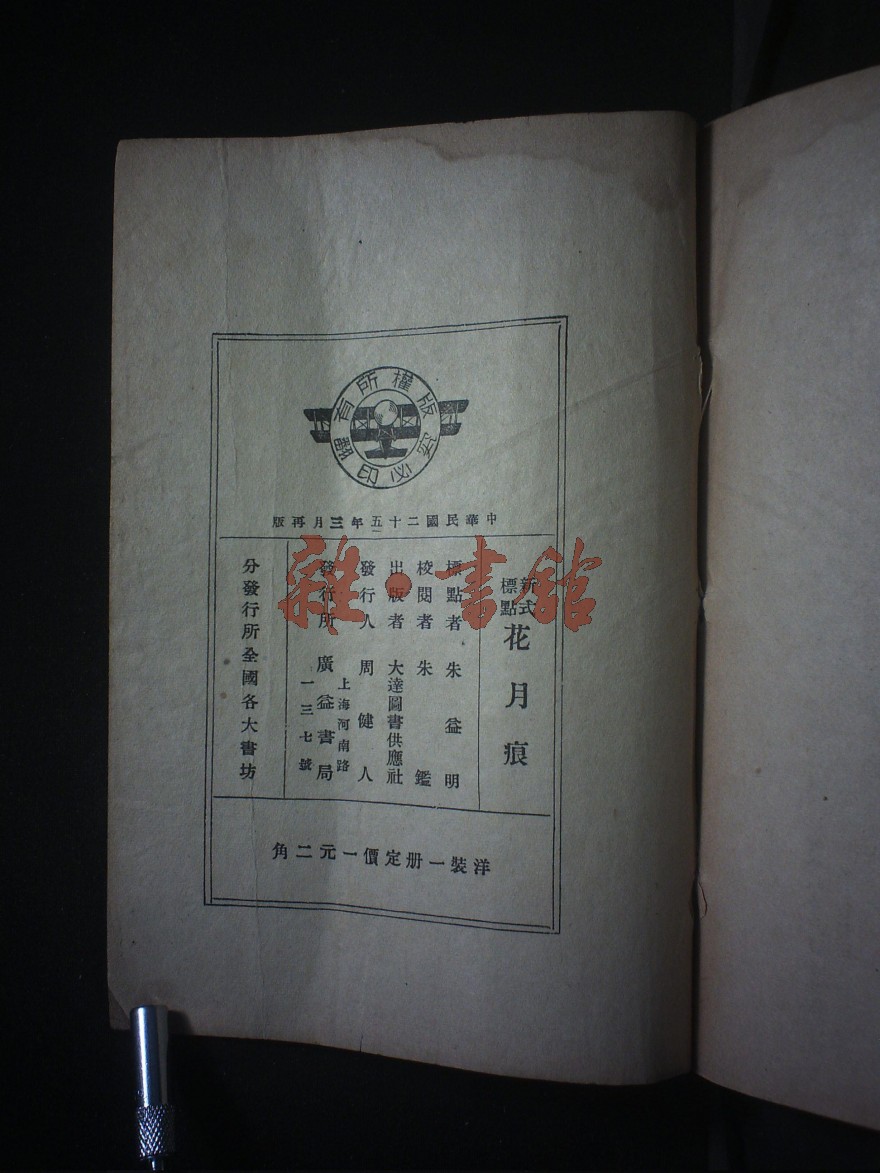 版權所有
翻印必究
中華民國二十五年三月再版
新式標點 花月痕
標點者 朱益明
校閱者 朱鑑
出版者 大達圖書供應社
發行人 周健人
發行所 廣益書局
上海河南路
一三七號
分發行所全國各大書坊
洋裝一册定價一元二角
雜·書館